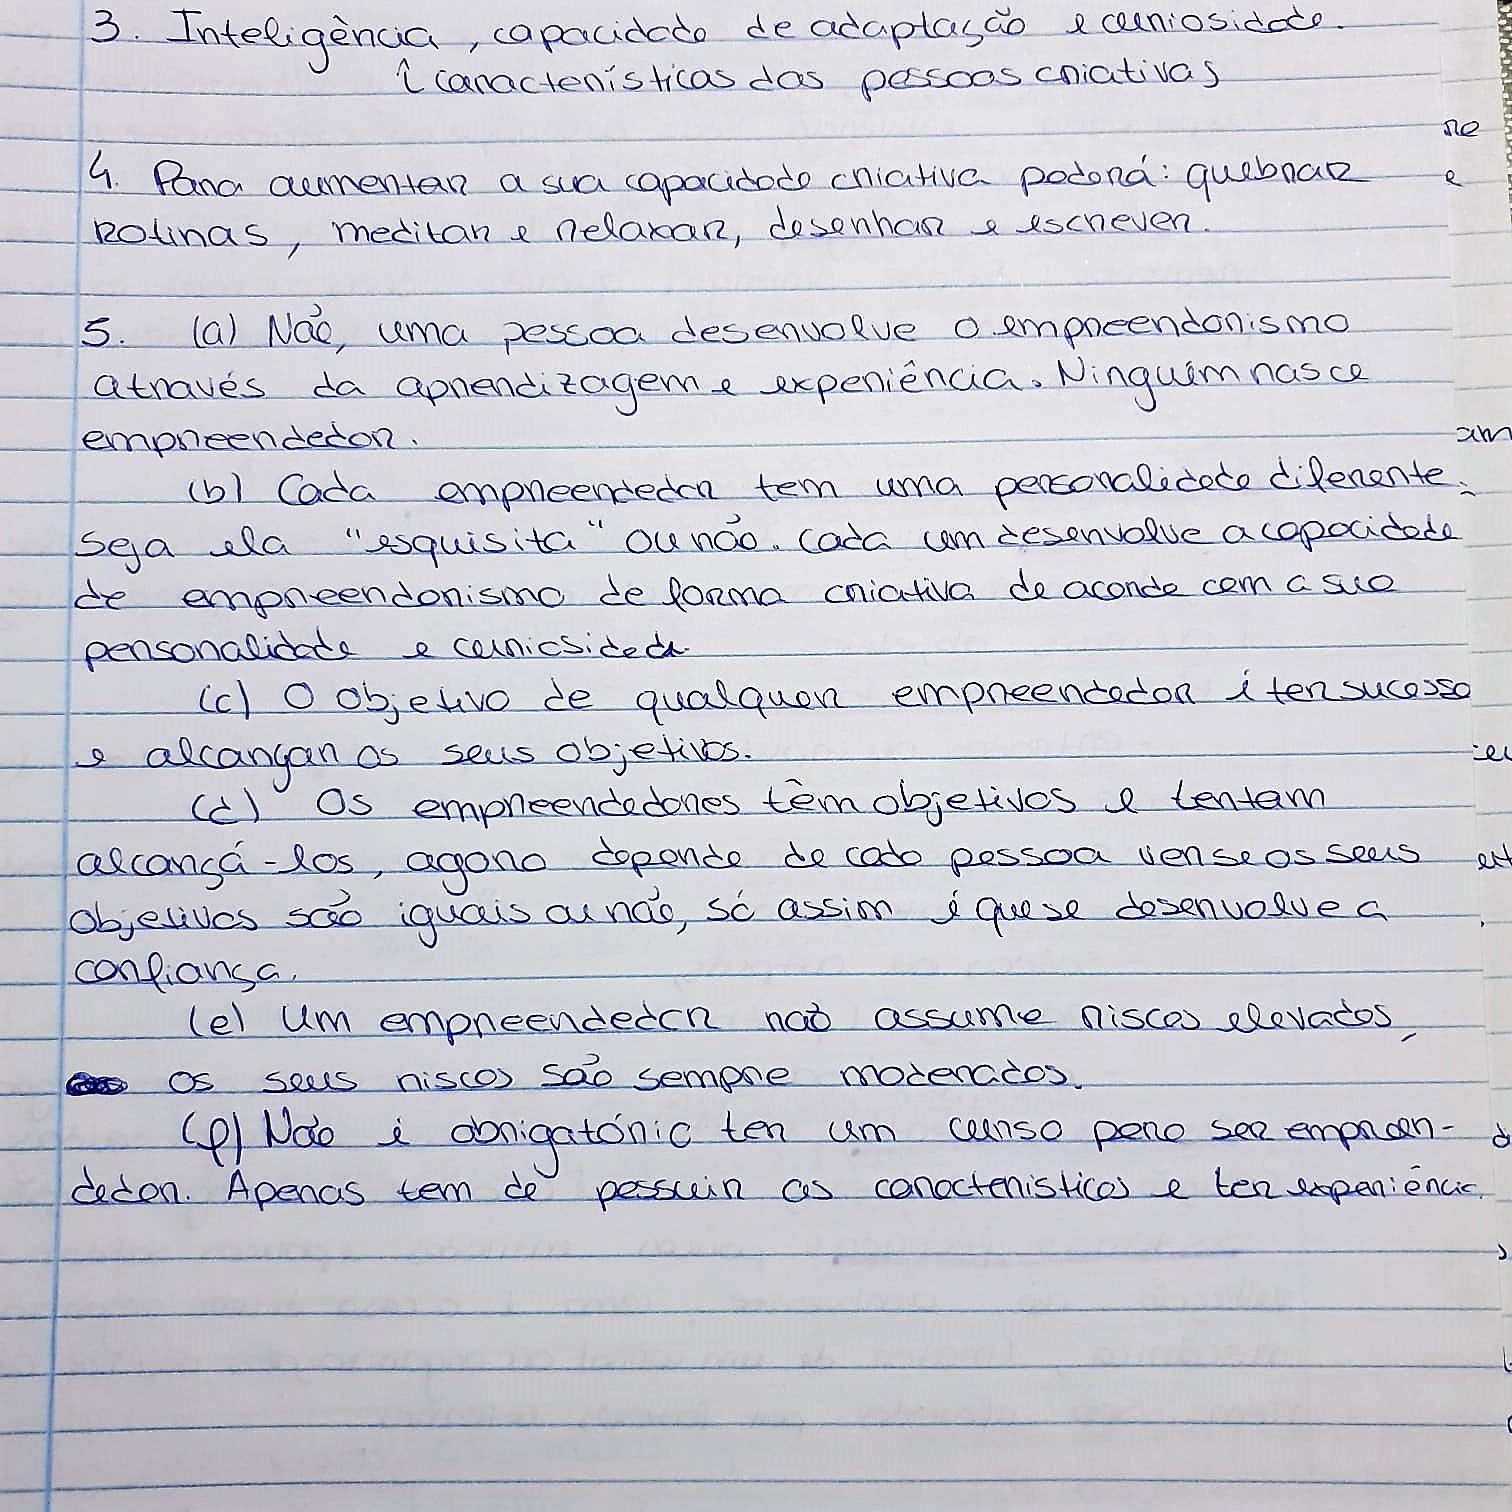 3. Inteligência, capacidade de adaptação e curiosidade.
características das pessoas criativas
4. Para aumentar a sua capacidade criativa poderá: quebrar
rotinas, meditar e relaxar, desenhar e escrever.
5. (a) Não, uma pessoa desenvolve o empreendorismo
através da aprendizagem e experiência. Ninguém nasce
empreendedor.
(b) Cada empreendedor tem uma personalidade diferente,
seja ela "esquisita" ou não. Cada um desenvolve a capacidade
de empreendorismo de forma criativa de acordo com a sua
personalidade e curiosidade
(c) O objetivo de qualquer empreendedor é ter sucesso
e alcançar os seus objetivos.
(d) Os empreendedores têm objetivos e tentam
alcançá-los, agora depende de cada pessoa ver se os seus
objetivos são iguais ou não, só assim é que se desenvolve a
confiança.
(e) Um empreendedor não assume riscos elevados,
os seus riscos são sempre moderados.
(f) Não é obrigatório ter um curso para ser empreen-
dedor. Apenas tem de possuir as características e ter experiência.